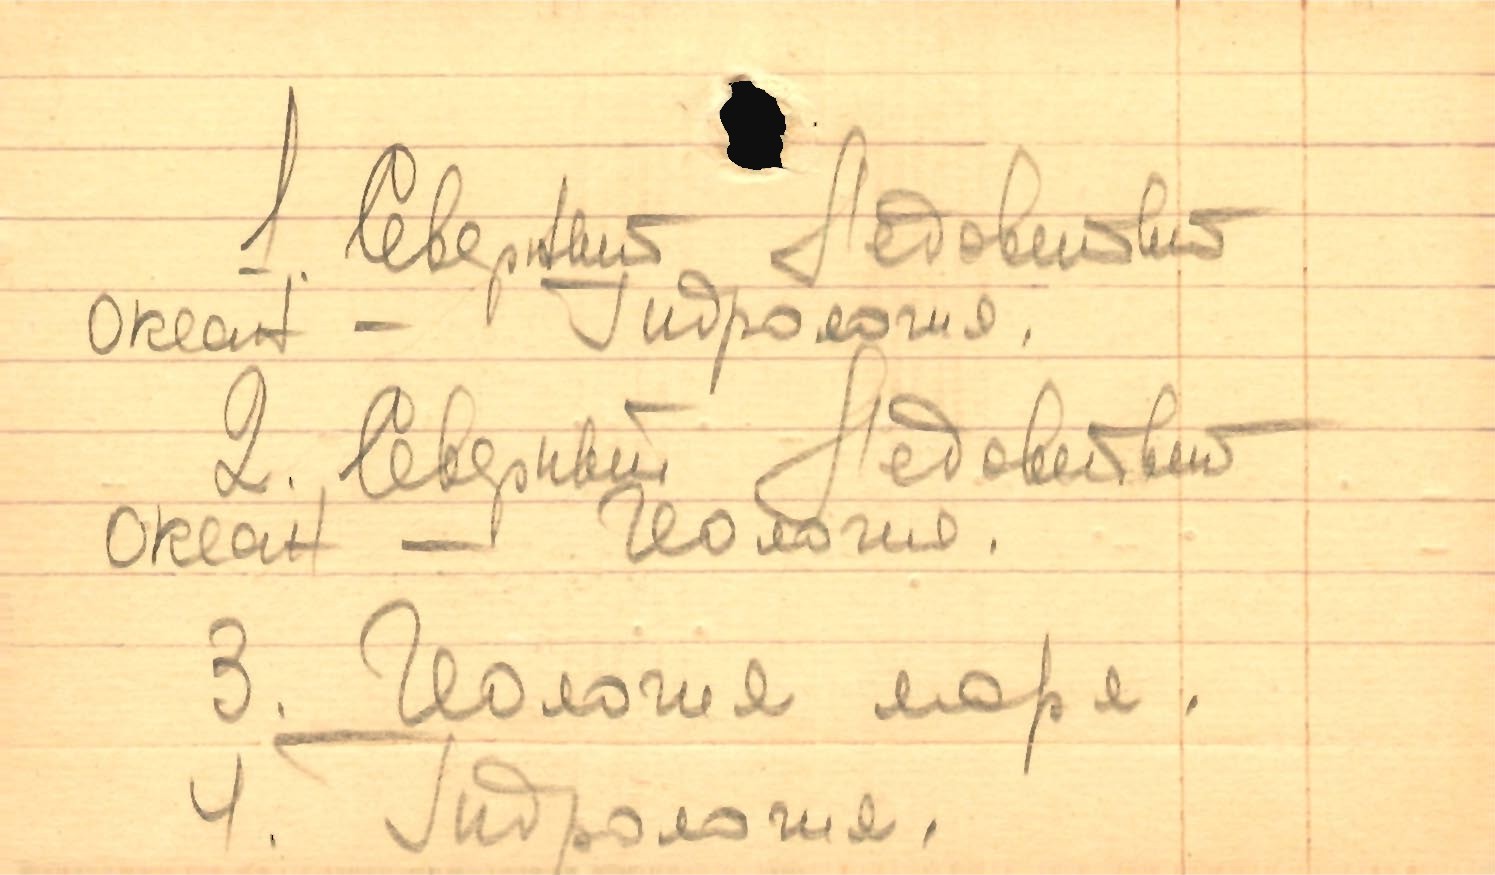 1. Северный Ледовитый
океан – Гидрология.
2. Северный Ледовитый
океан – Геология.
3. Геология моря.
4. Гидрология.